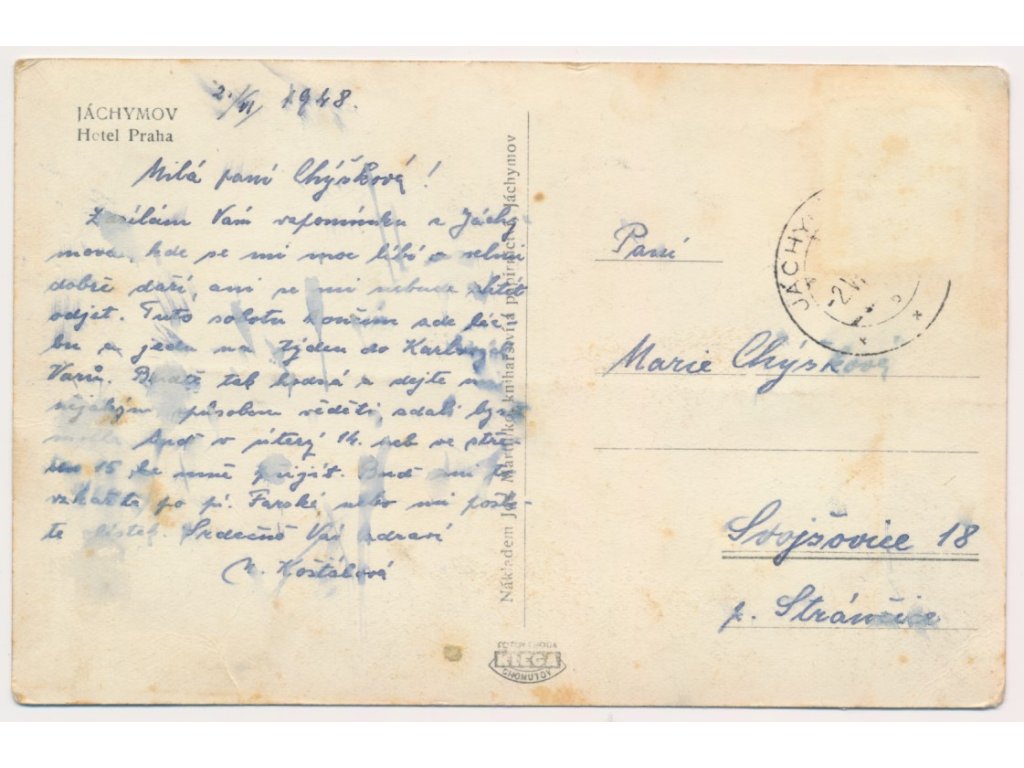 JÁCHYMOV
Hotel Praha
2./VI 1948.
Milá paní Chýšková!
Zasílám Vám vzpomínku z Jáchy-
mova, kde se mi moc líbí a velmi
dobře daří, ani se mi nebude chtít
odjet. Tuto sobotu končím zde léč-
bu a jedu na týden do Karlových
Varů. Buďte tak hodná a dejte mi
nějakým způsobem věděti, zdali byste
mohla buď v úterý 14. neb ve stře-
du 15. ke mně přijít. Buď mi to
vzkažte po pí. Farské nebo mi pošle-
te lístek. Srdečně Vás zdraví
M. Košťálová
Nákladem knihařství a papírnictví Jáchymov
Paní
Marie Chýšková
Svojšovice 18
p. Stránčice
JÁCHY
-2.VI
KREGA
CHOMUTOV